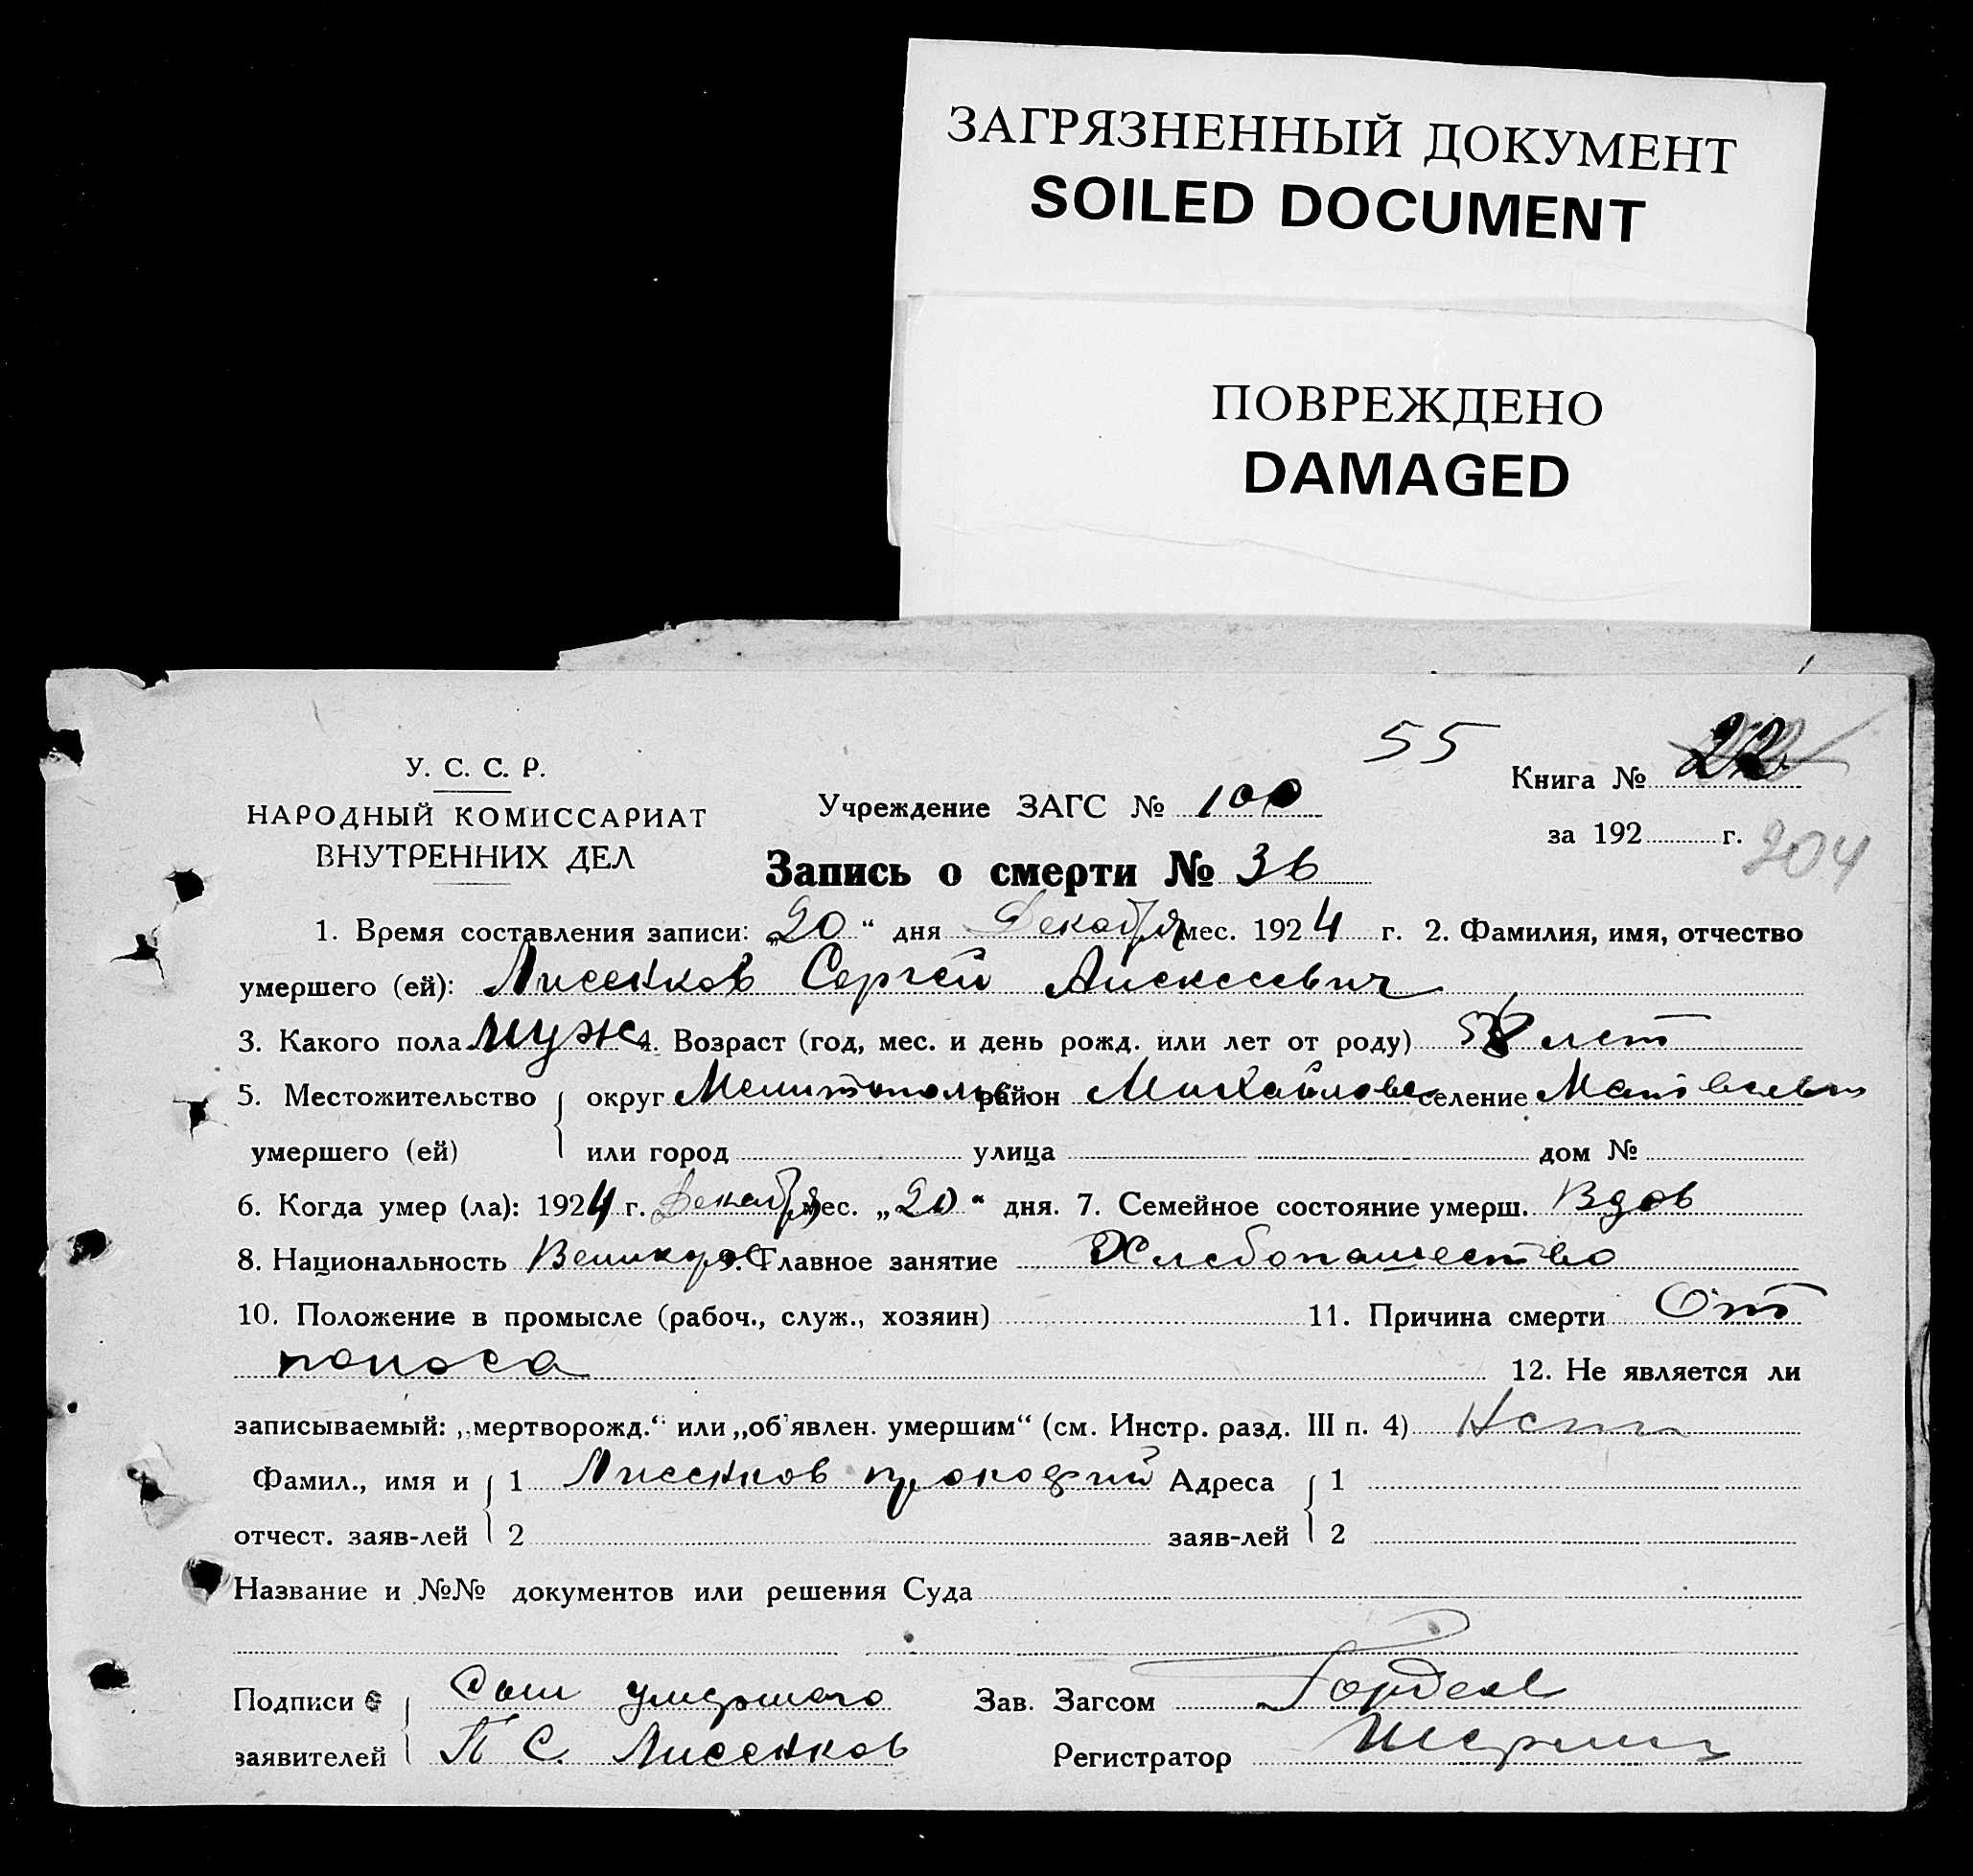 ЗАГРЯЗНЕННЫЙ ДОКУМЕНТ
SOILED DOCUMENT
ПОВРЕЖДЕНО
DAMAGED
55
У. С. С. Р.
НАРОДНЫЙ КОМИССАРИАТ
ВНУТРЕННИХ ДЕЛ
Учреждение ЗАГС № 100
Книга № 22
за 192 г.
204
Запись о смерти № 36
1. Время составления записи: „20“ дня Декабря мес. 1924 г. 2. Фамилия, имя, отчество
умершего (ей): Лисенков Сергей Алексеевич
3. Какого пола муж 4. Возраст (год, мес. и день рожд. или лет от роду) лет
5. Местожительство округ Мелитополь район Михайловс селение
умершего (ей) или город улица дом №
6. Когда умер (ла): 1924 г. Декабря мес. „20“ дня. 7. Семейное состояние умерш. Вдов
8. Национальность Великорос 9. Главное занятие Хлебопашество
10. Положение в промысле (рабоч., служ., хозяин) 11. Причина смерти От
поноса 12. Не является ли
записываемый: „мертворожд.“ или „об'явлен. умершим“ (см. Инстр. разд. III п. 4) Нет
Фамил., имя и 1 Лисенков прокофий Адреса 1
отчест. заяв-лей 2 заяв-лей 2
Название и №№ документов или решения Суда
Подписи Сын умершого Зав. Загсом Гордеев
заявителей П С. Лисенков Регистратор